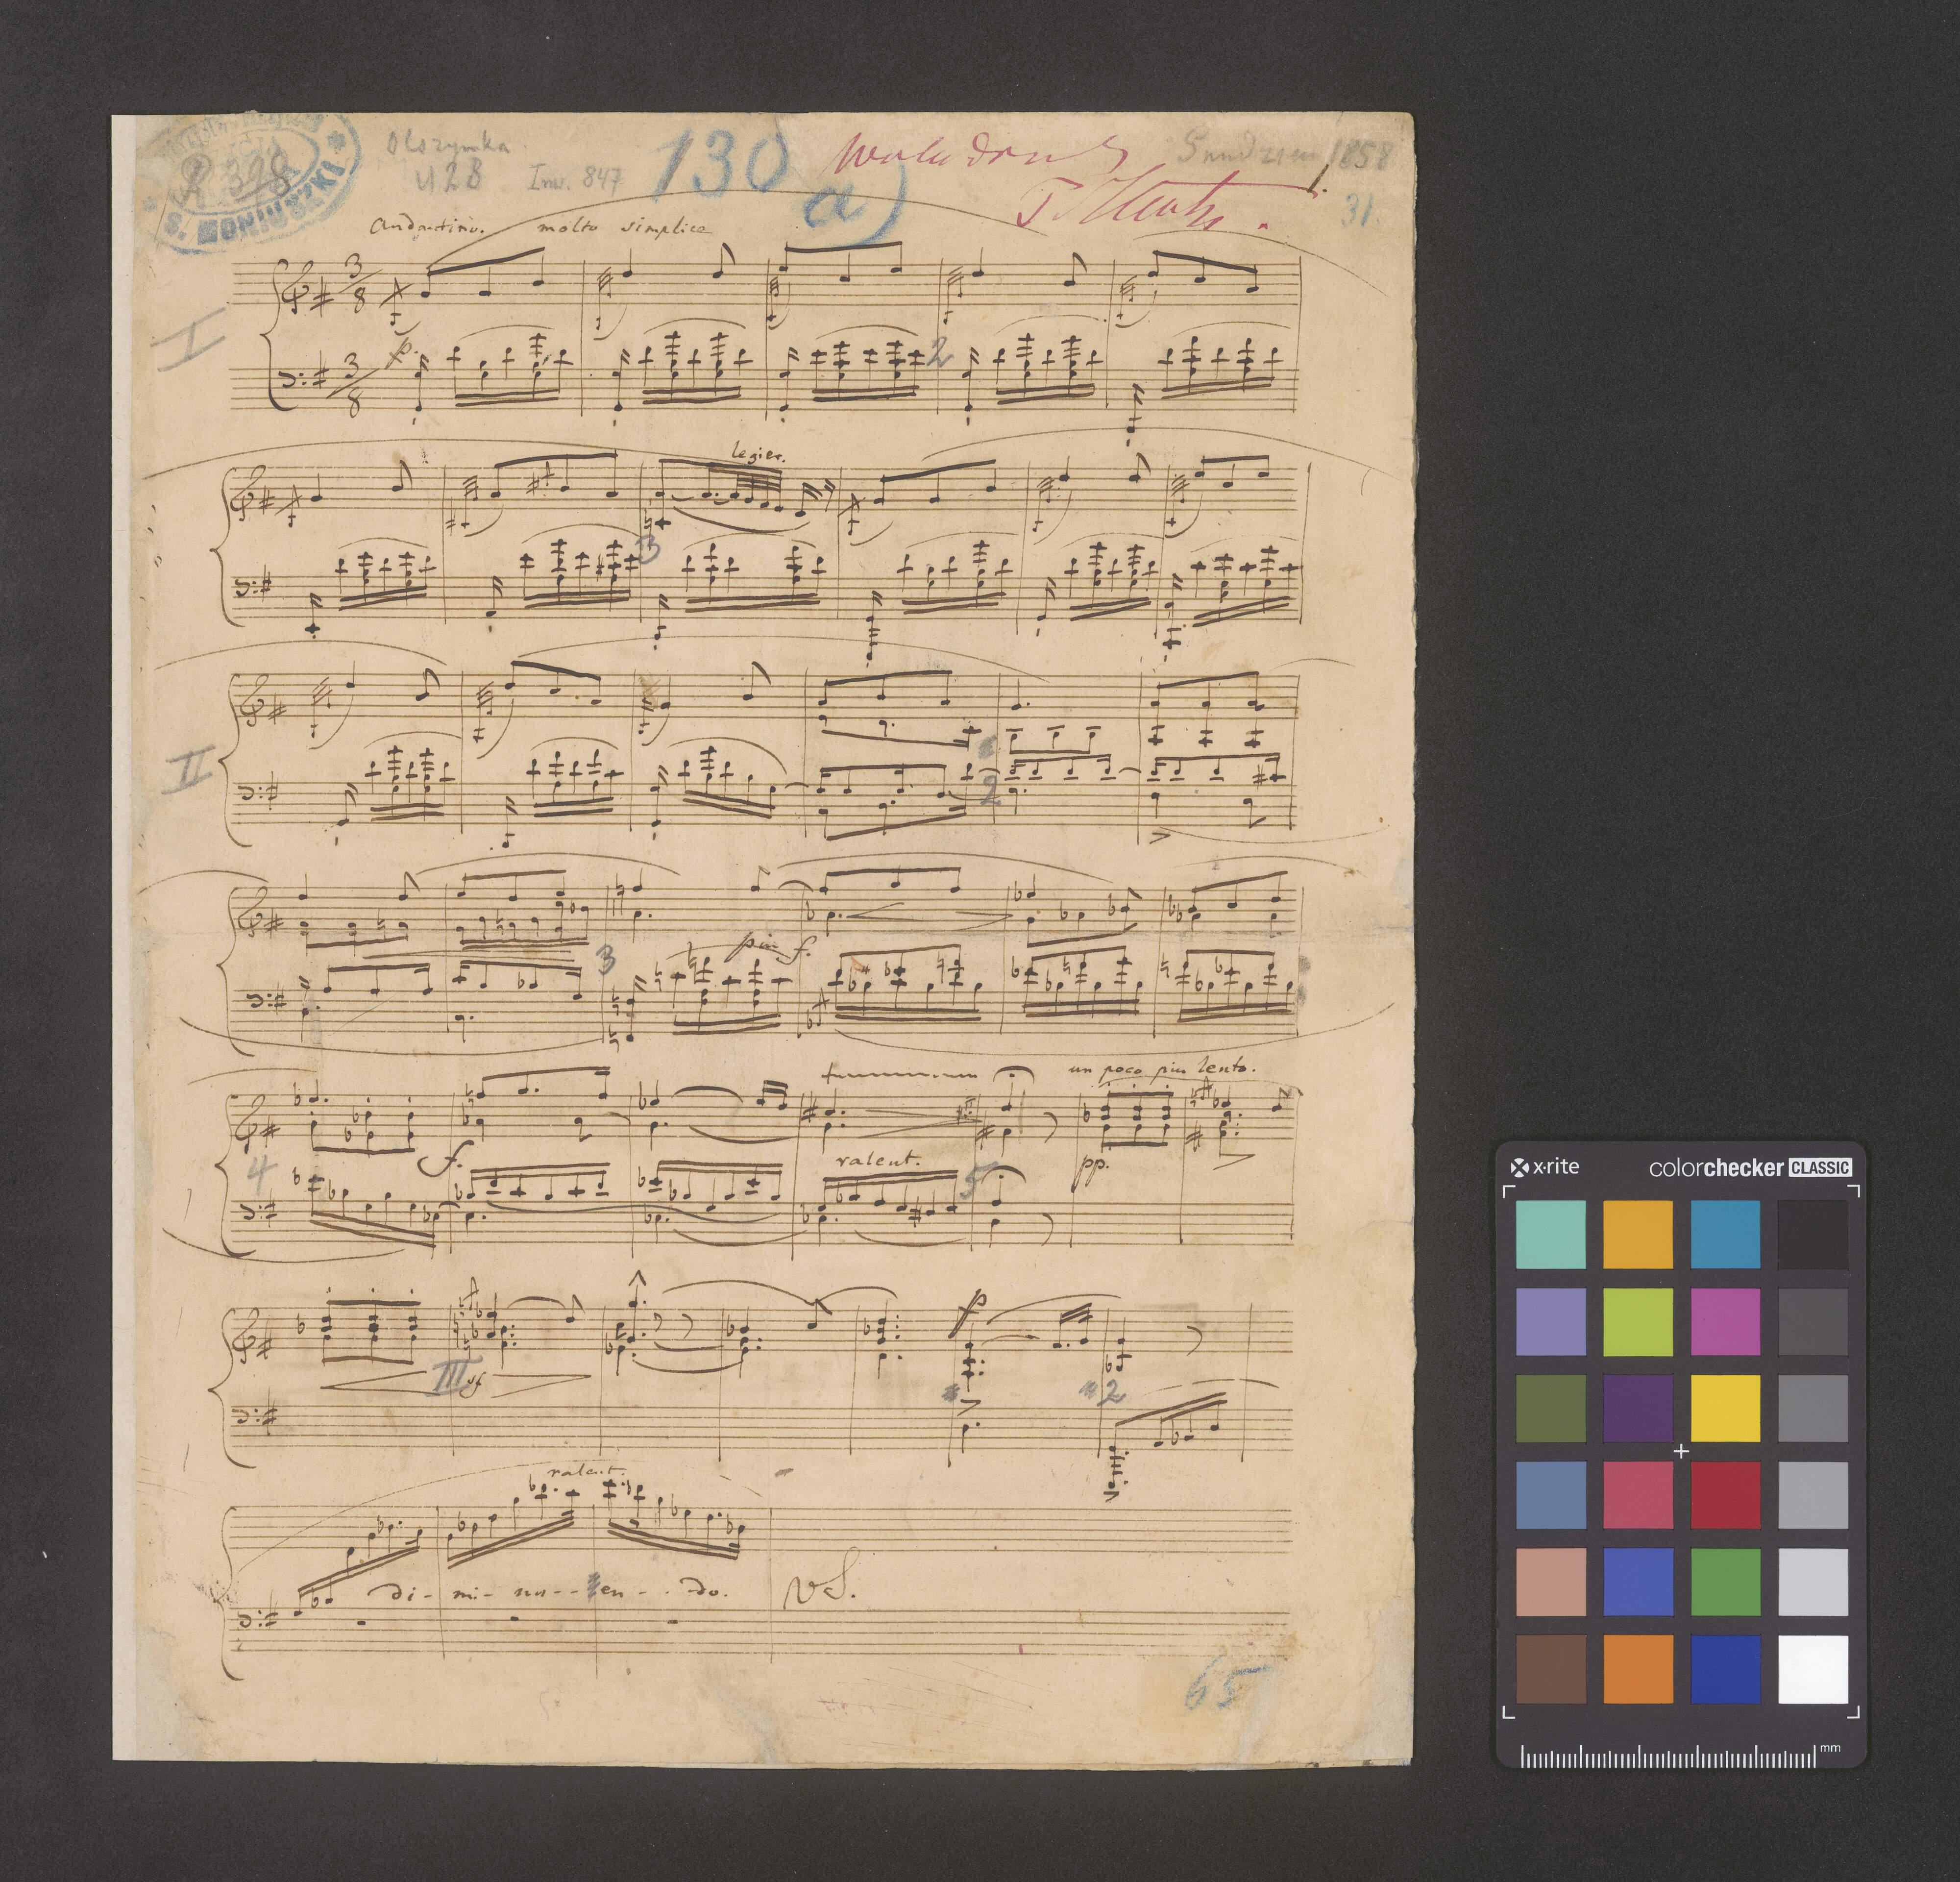 R 398
S. MONIUSZKI
Olszynka
U 2 B
Inw. 847
130
a)
1858
1.
31
Andantino. molto simplice
I
3/8
p.
3/8
2
legier.
3
II
2
3
più f.
un poco più lento.
4
f.
ralent.
5
pp.
p
III
sf
2
ralent.
di - mi - nu - - en - - do.
VS.
65
x-rite
colorchecker CLASSIC
mm